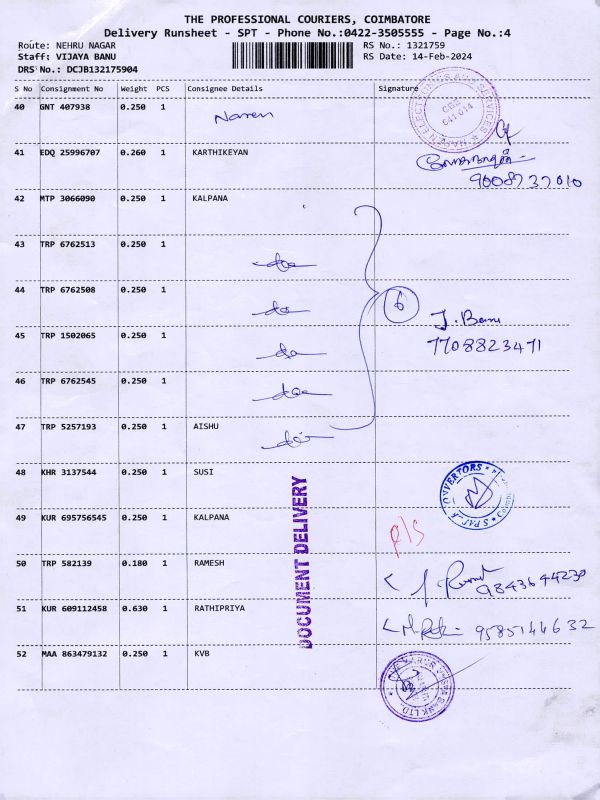 THE PROFESSIONAL COURIERS, COIMBATORE
Delivery Runsheet - SPT - Phone No.:0422-3505555 - Page No.:4
Route: NEHRU NAGAR RS No.: 1321759
Staff: VIJAYA BANU RS Date: 14-Feb-2024
DRS No.: DCJB132175904
S No Consignment No Weight PCS Consignee Details Signature
40 GNT 407938 0.250 1 Naren
CBE 641 014
41 EDQ 25996707 0.260 1 KARTHIKEYAN
9008737010
42 MTP 3066090 0.250 1 KALPANA
43 TRP 6762513 0.250 1 do
44 TRP 6762508 0.250 1 do 6
J. Banu
45 TRP 1502065 0.250 1 do 7708823471
46 TRP 6762545 0.250 1 do
47 TRP 5257193 0.250 1 AISHU
do
48 KHR 3137544 0.250 1 SUSI
49 KUR 695756545 0.250 1 KALPANA
R/S
50 TRP 582139 0.180 1 RAMESH
9843644230
51 KUR 609112458 0.630 1 RATHIPRIYA
9585144632
52 MAA 863479132 0.250 1 KVB
DOCUMENT DELIVERY